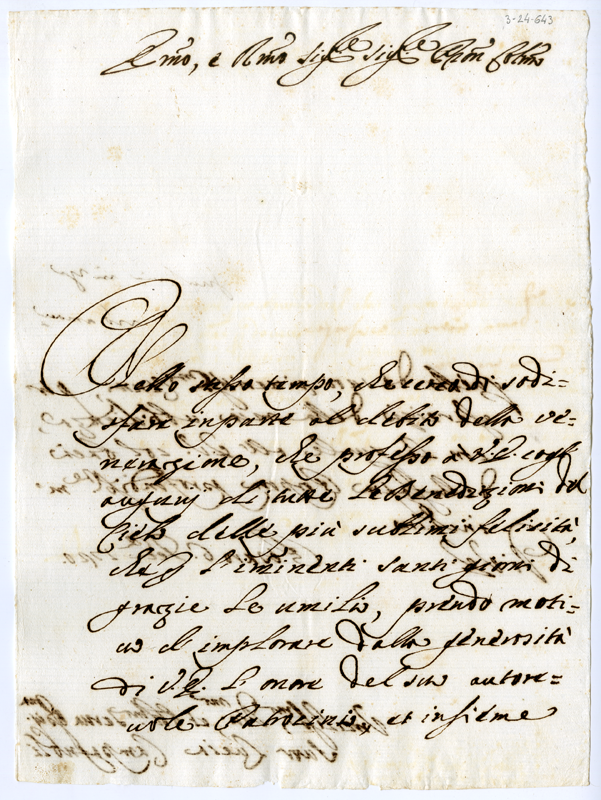 3-24-643
Emo, e Rmo Sigre Sigre Pron Colmo
Nello stesso tempo, che cerco di sodi=
sfare in parte al debito della ve=
nerazione, che professo à V.E. cogli
auguri di tutte le Benedizioni del
Cielo delle più sublimi felicità,
che p l'iminenti santi giorni di
grazie Le umilio, prendo moti=
vo d'implorare dalla generosità
di V.E. l'onore del suo autore=
uole Patrocinio, et insieme